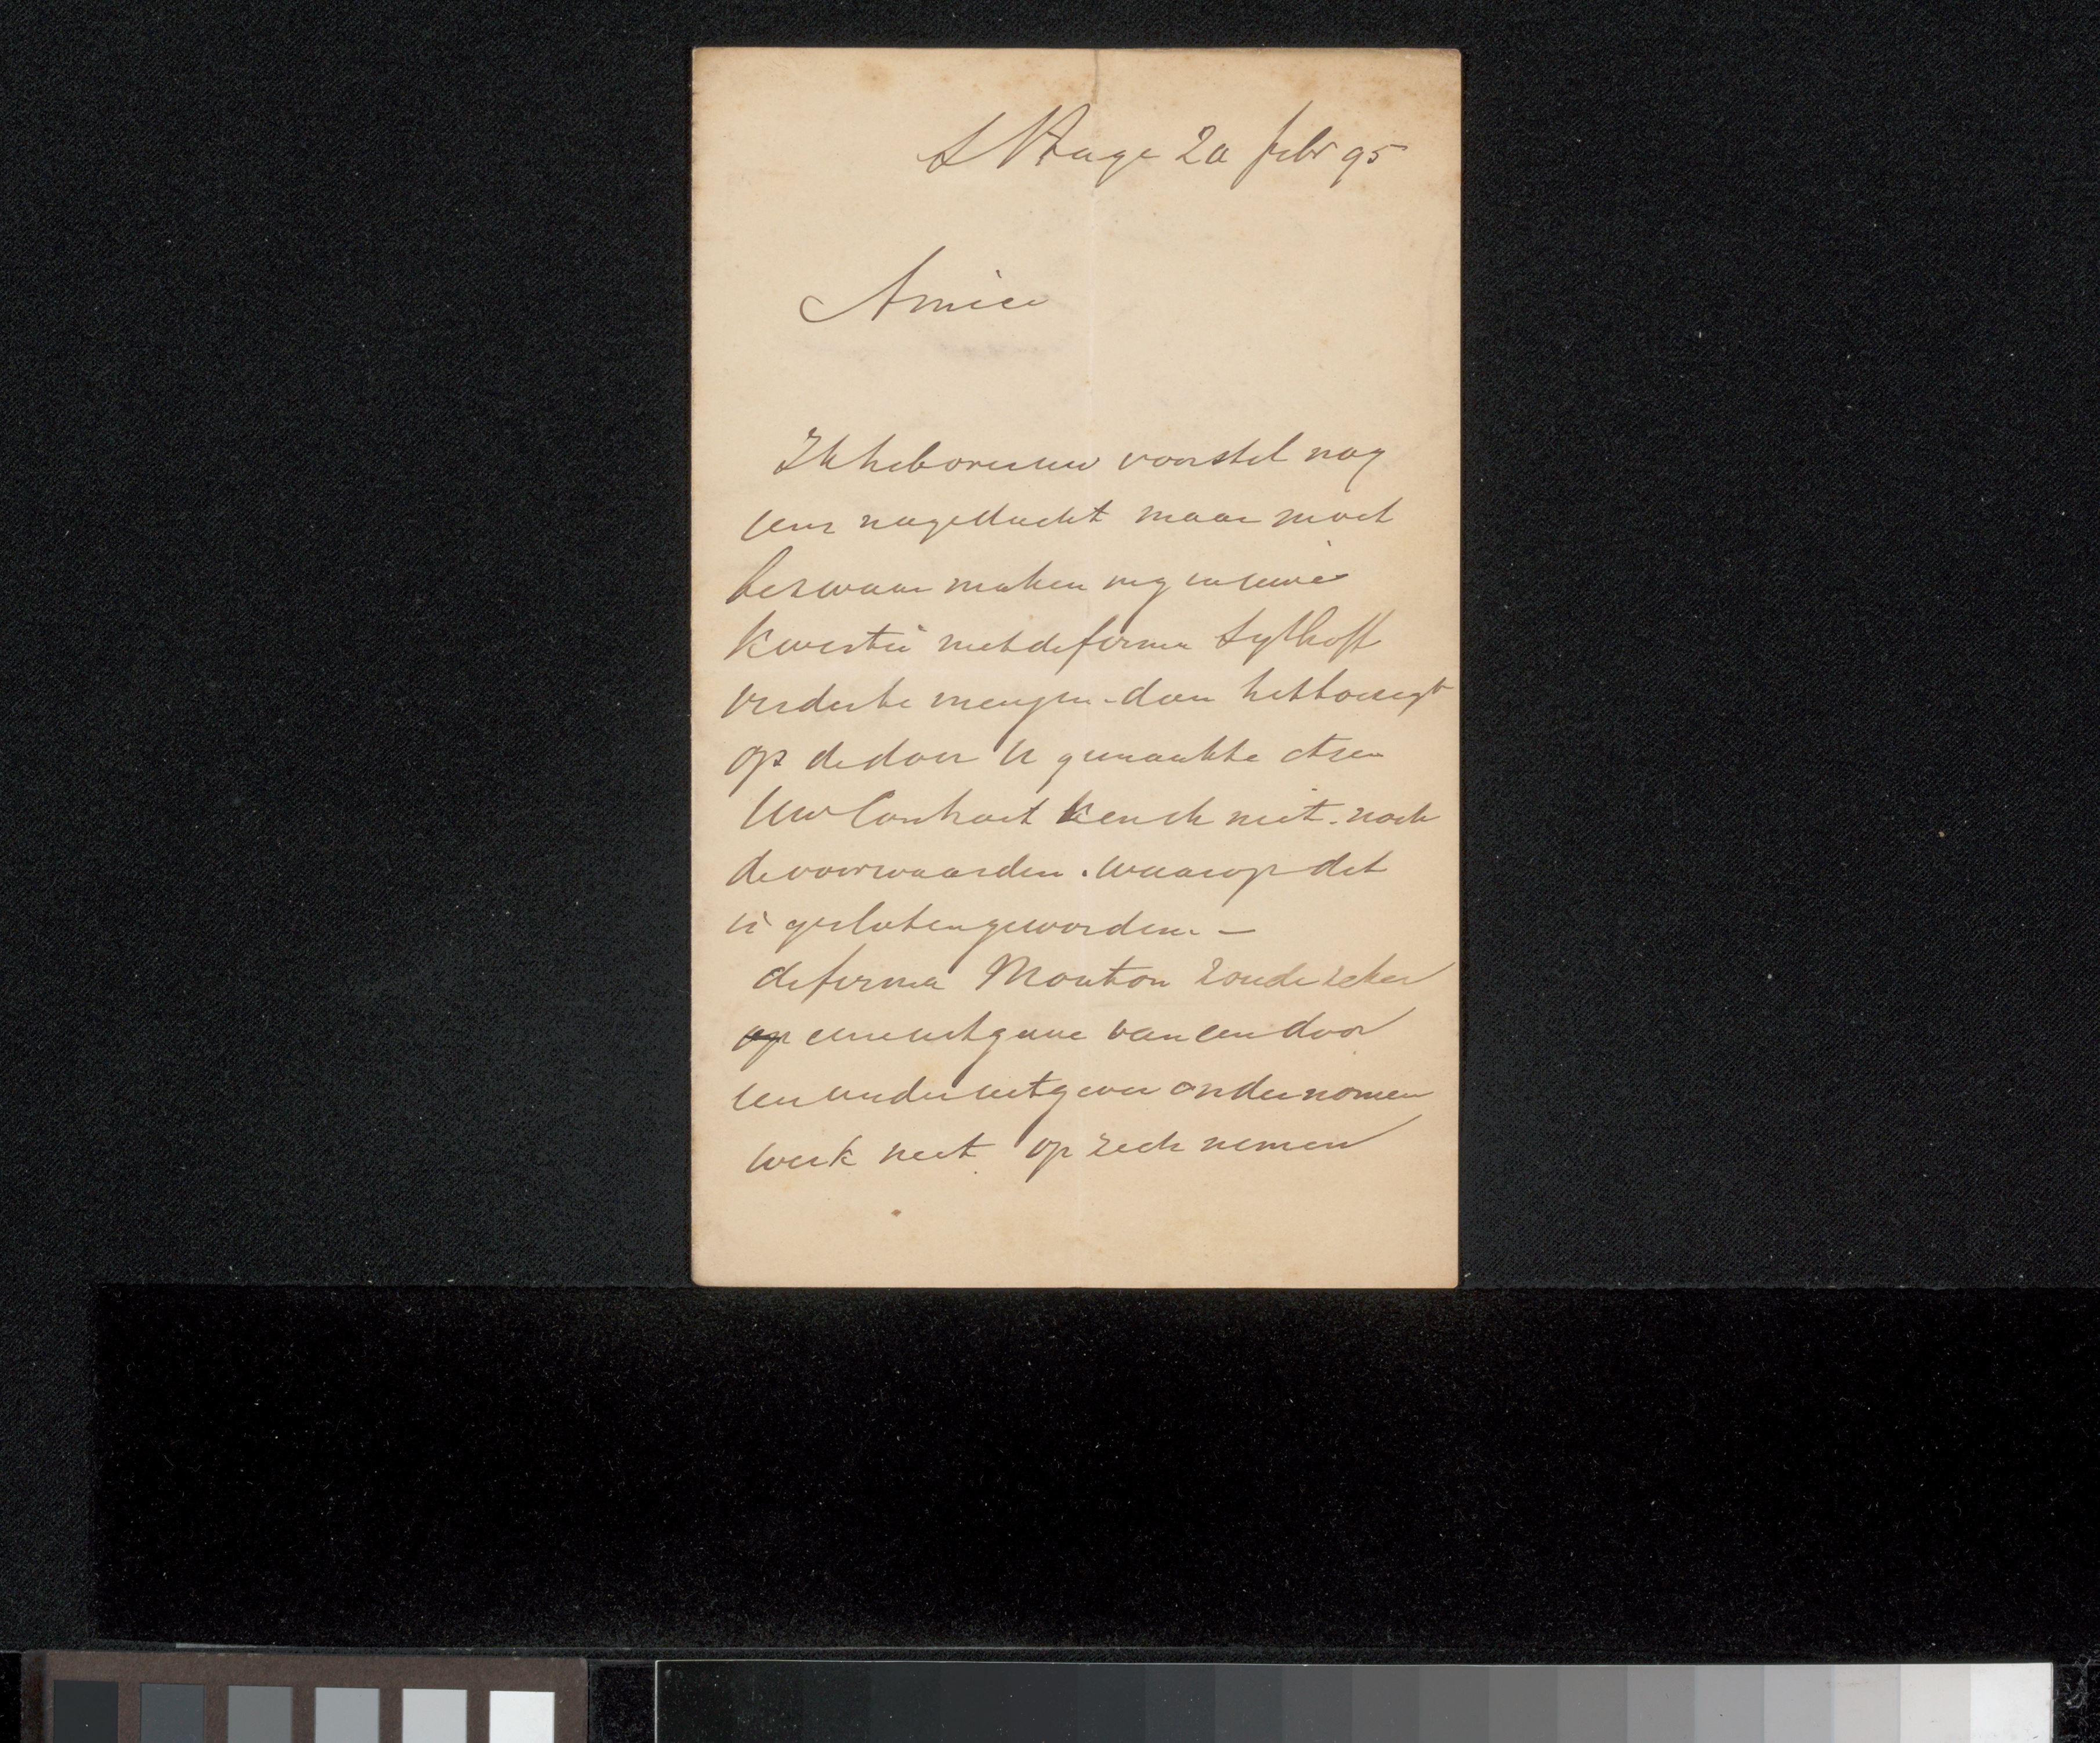 S Hage 20 febr 95
Amice
Ik heb over uw voorstel nog
eens nagedacht maar moet
bezwaar maken mij in uwe
kwestie met de firma Sythoff
verder te mengen - dan het toezigt
op de door U gemaakte etsen
Uw Contract ken ik niet. noch
de voorwaarden. waarop dit
is gesloten geworden. —
de firma Mouton zoude zeker
op eene uitgave van een door
een ander uitgever ondernomen
werk niet op zich nemen